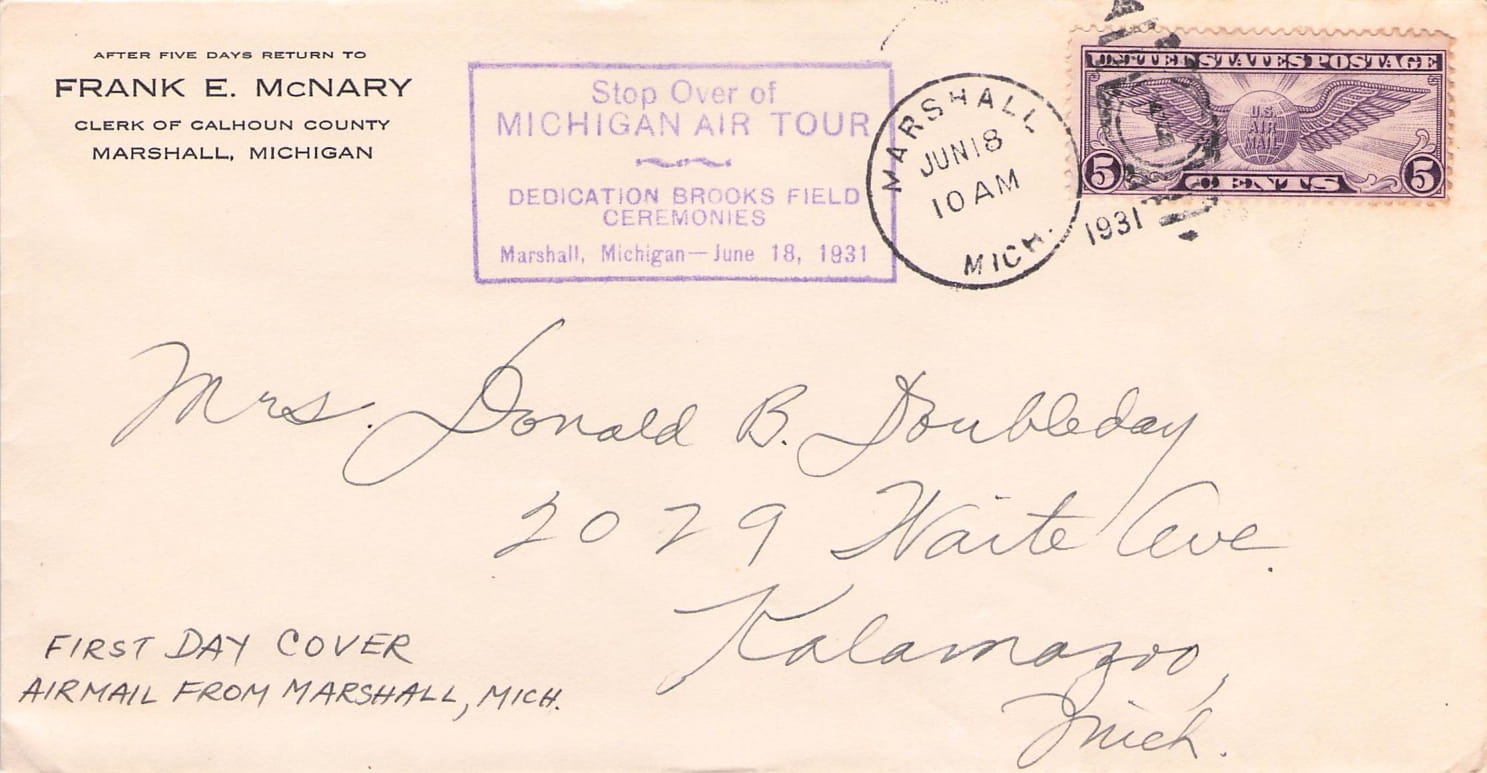 AFTER FIVE DAYS RETURN TO
FRANK E. McNARY
CLERK OF CALHOUN COUNTY
MARSHALL, MICHIGAN
Stop Over of
MICHIGAN AIR TOUR
DEDICATION BROOKS FIELD
CEREMONIES
Marshall, Michigan—June 18, 1931
MARSHALL
JUN 18
10 AM
MICH.
1931
UNITED STATES POSTAGE
U.S.
AIR
MAIL
5 CENTS 5
Mrs. Donald B. Doubleday
2029 Waite Ave.
Kalamazoo,
Mich.
FIRST DAY COVER
AIRMAIL FROM MARSHALL, MICH.